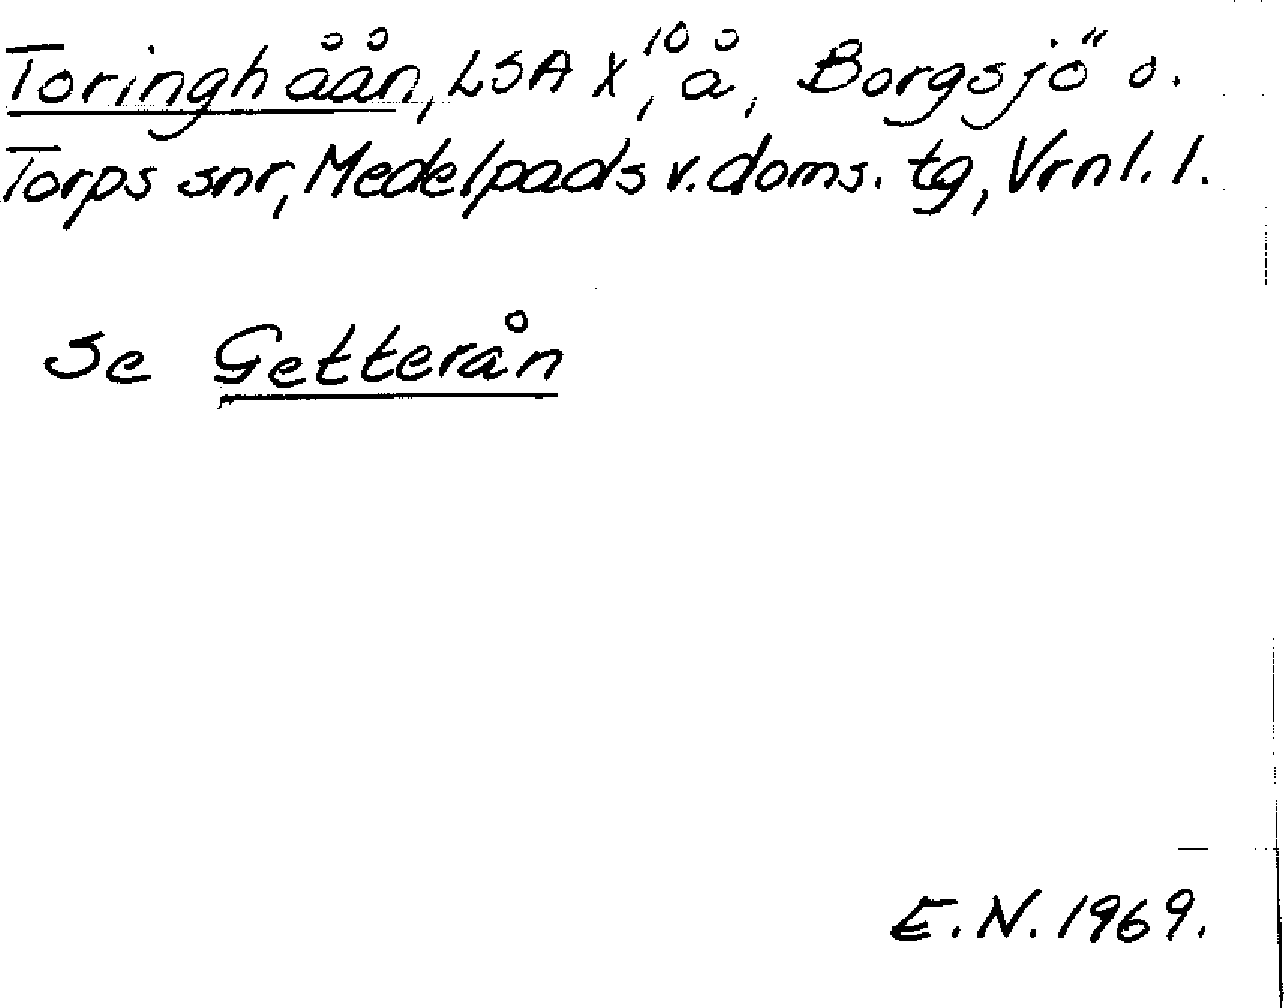 Toringhåån, LSA X¹⁰, å, Borgsjö o.
Torps snr, Medelpads v. doms. tg, Vrnl. l.
Se Getterån
E.N. 1969.